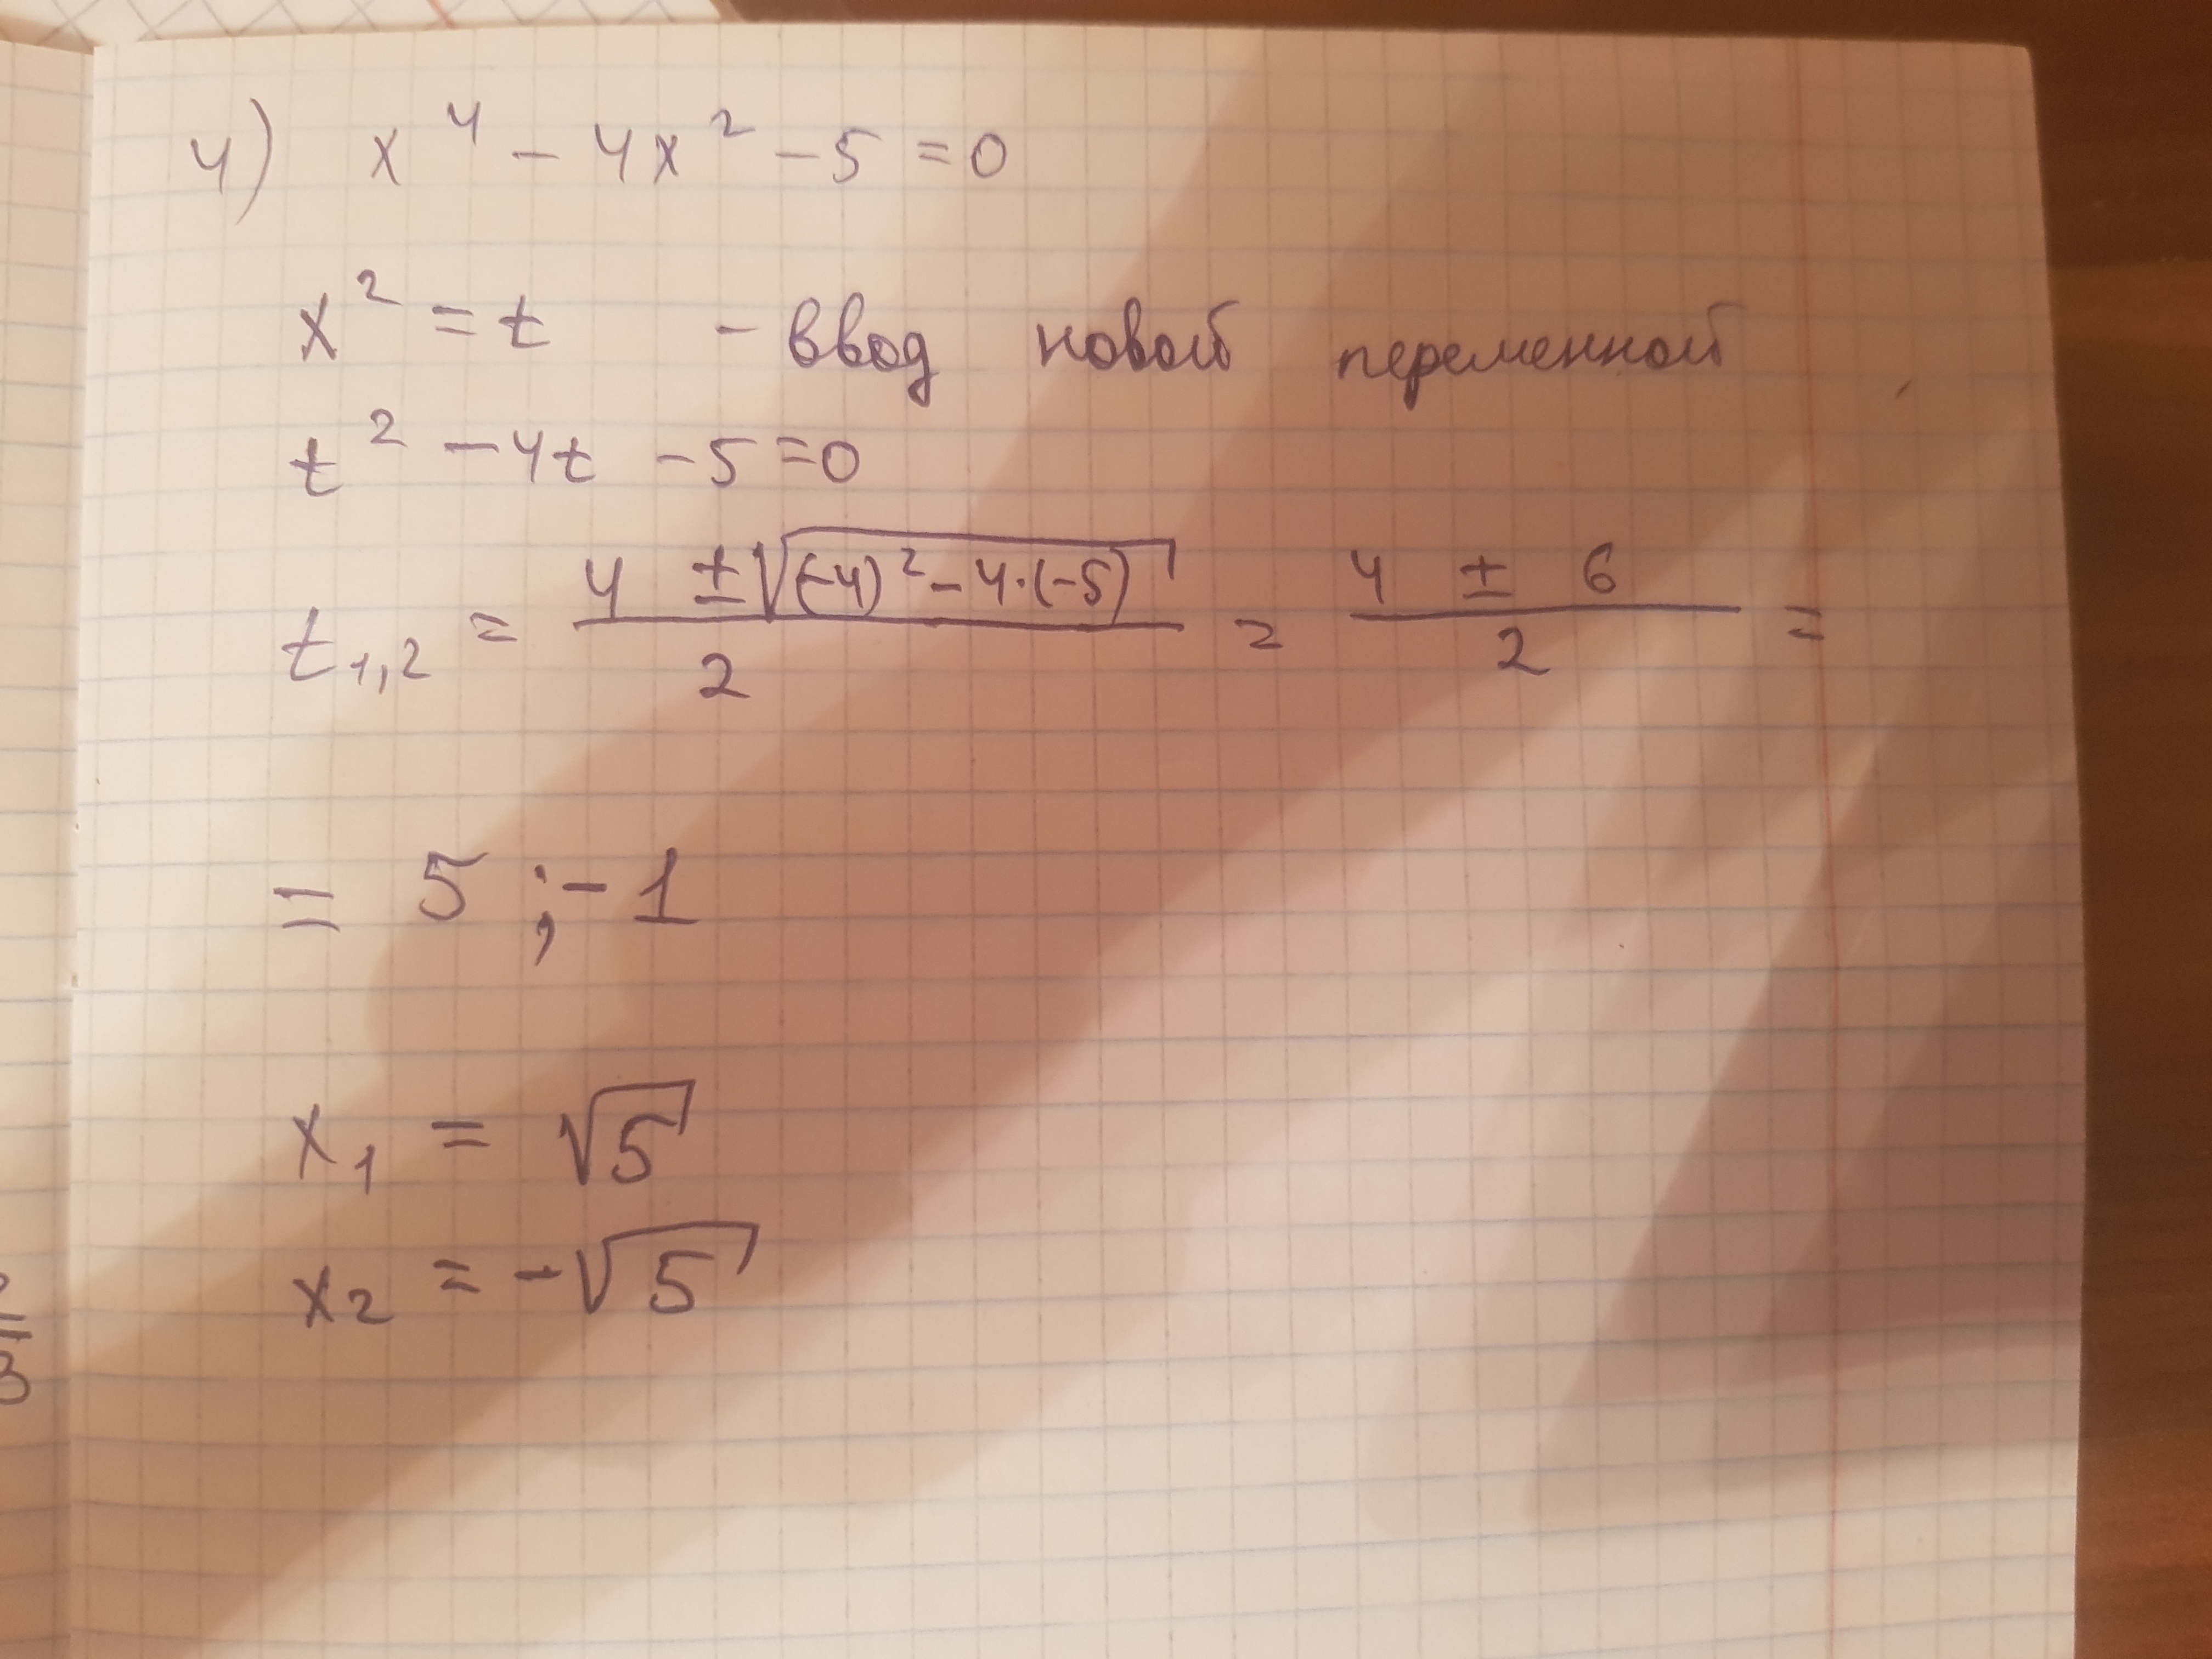 4) x⁴ - 4x² - 5 = 0
x² = t - ввод новой переменной
t² - 4t - 5 = 0
t₁,₂ = (4 ± √((-4)² - 4·(-5)))/2 = (4 ± 6)/2 =
= 5 ; -1
x₁ = √5
x₂ = -√5